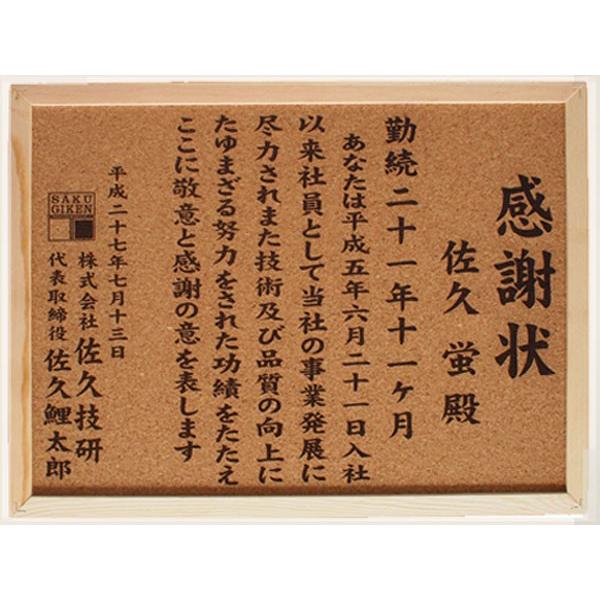 感謝状
佐久 蛍殿
勤続二十一年十一ヶ月
あなたは平成五年六月二十一日入社
以来社員として当社の事業発展に
尽力されまた技術及び品質の向上に
たゆまざる努力をされた功績をたたえ
ここに敬意と感謝の意を表します
平成二十七年七月十三日
SAKU
GIKEN
株式会社 佐久技研
代表取締役 佐久鯉太郎